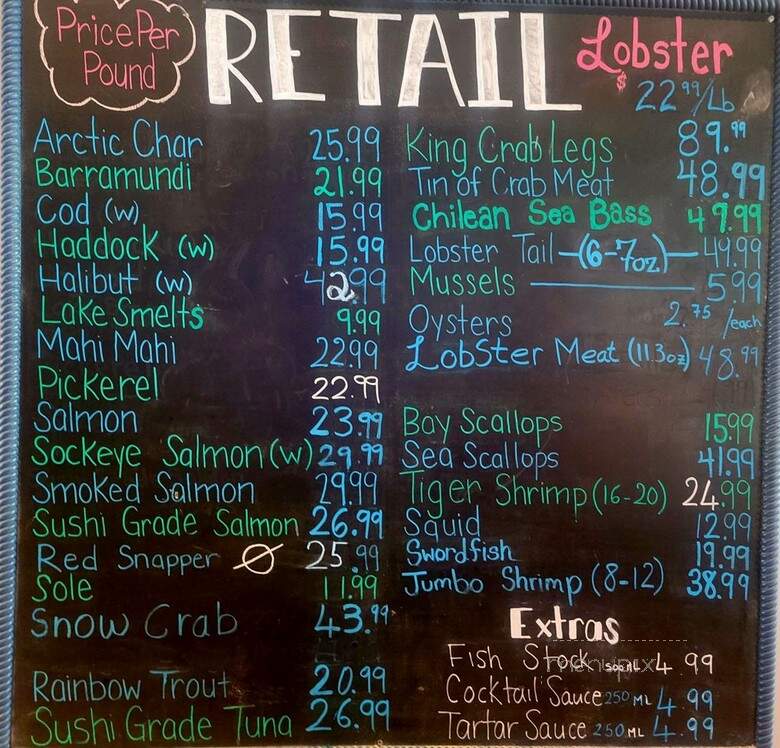 Price Per
Pound
RETAIL
Lobster
$ 22.99/Lb
Arctic Char 25.99
Barramundi 21.99
Cod (w) 15.99
Haddock (w) 15.99
Halibut (w) 42.99
Lake Smelts 9.99
Mahi Mahi 22.99
Pickerel 22.99
Salmon 23.99
Sockeye Salmon (w) 29.99
Smoked Salmon 29.99
Sushi Grade Salmon 26.99
Red Snapper Ø 25.99
Sole 11.99
Snow Crab 43.99
Rainbow Trout 20.99
Sushi Grade Tuna 26.99
King Crab Legs 89.99
Tin of Crab Meat 48.99
Chilean Sea Bass 49.99
Lobster Tail -(6-7oz)- 49.99
Mussels — 5.99
Oysters 2.75 /each
Lobster Meat (11.3oz) 48.99
Bay Scallops 15.99
Sea Scallops 41.99
Tiger Shrimp (16-20) 24.99
Squid 12.99
Swordfish 19.99
Jumbo Shrimp (8-12) 38.99
Extras
Fish Stock 500ML 4.99
Cocktail Sauce 250ML 4.99
Tartar Sauce 250ML 4.99
menupix